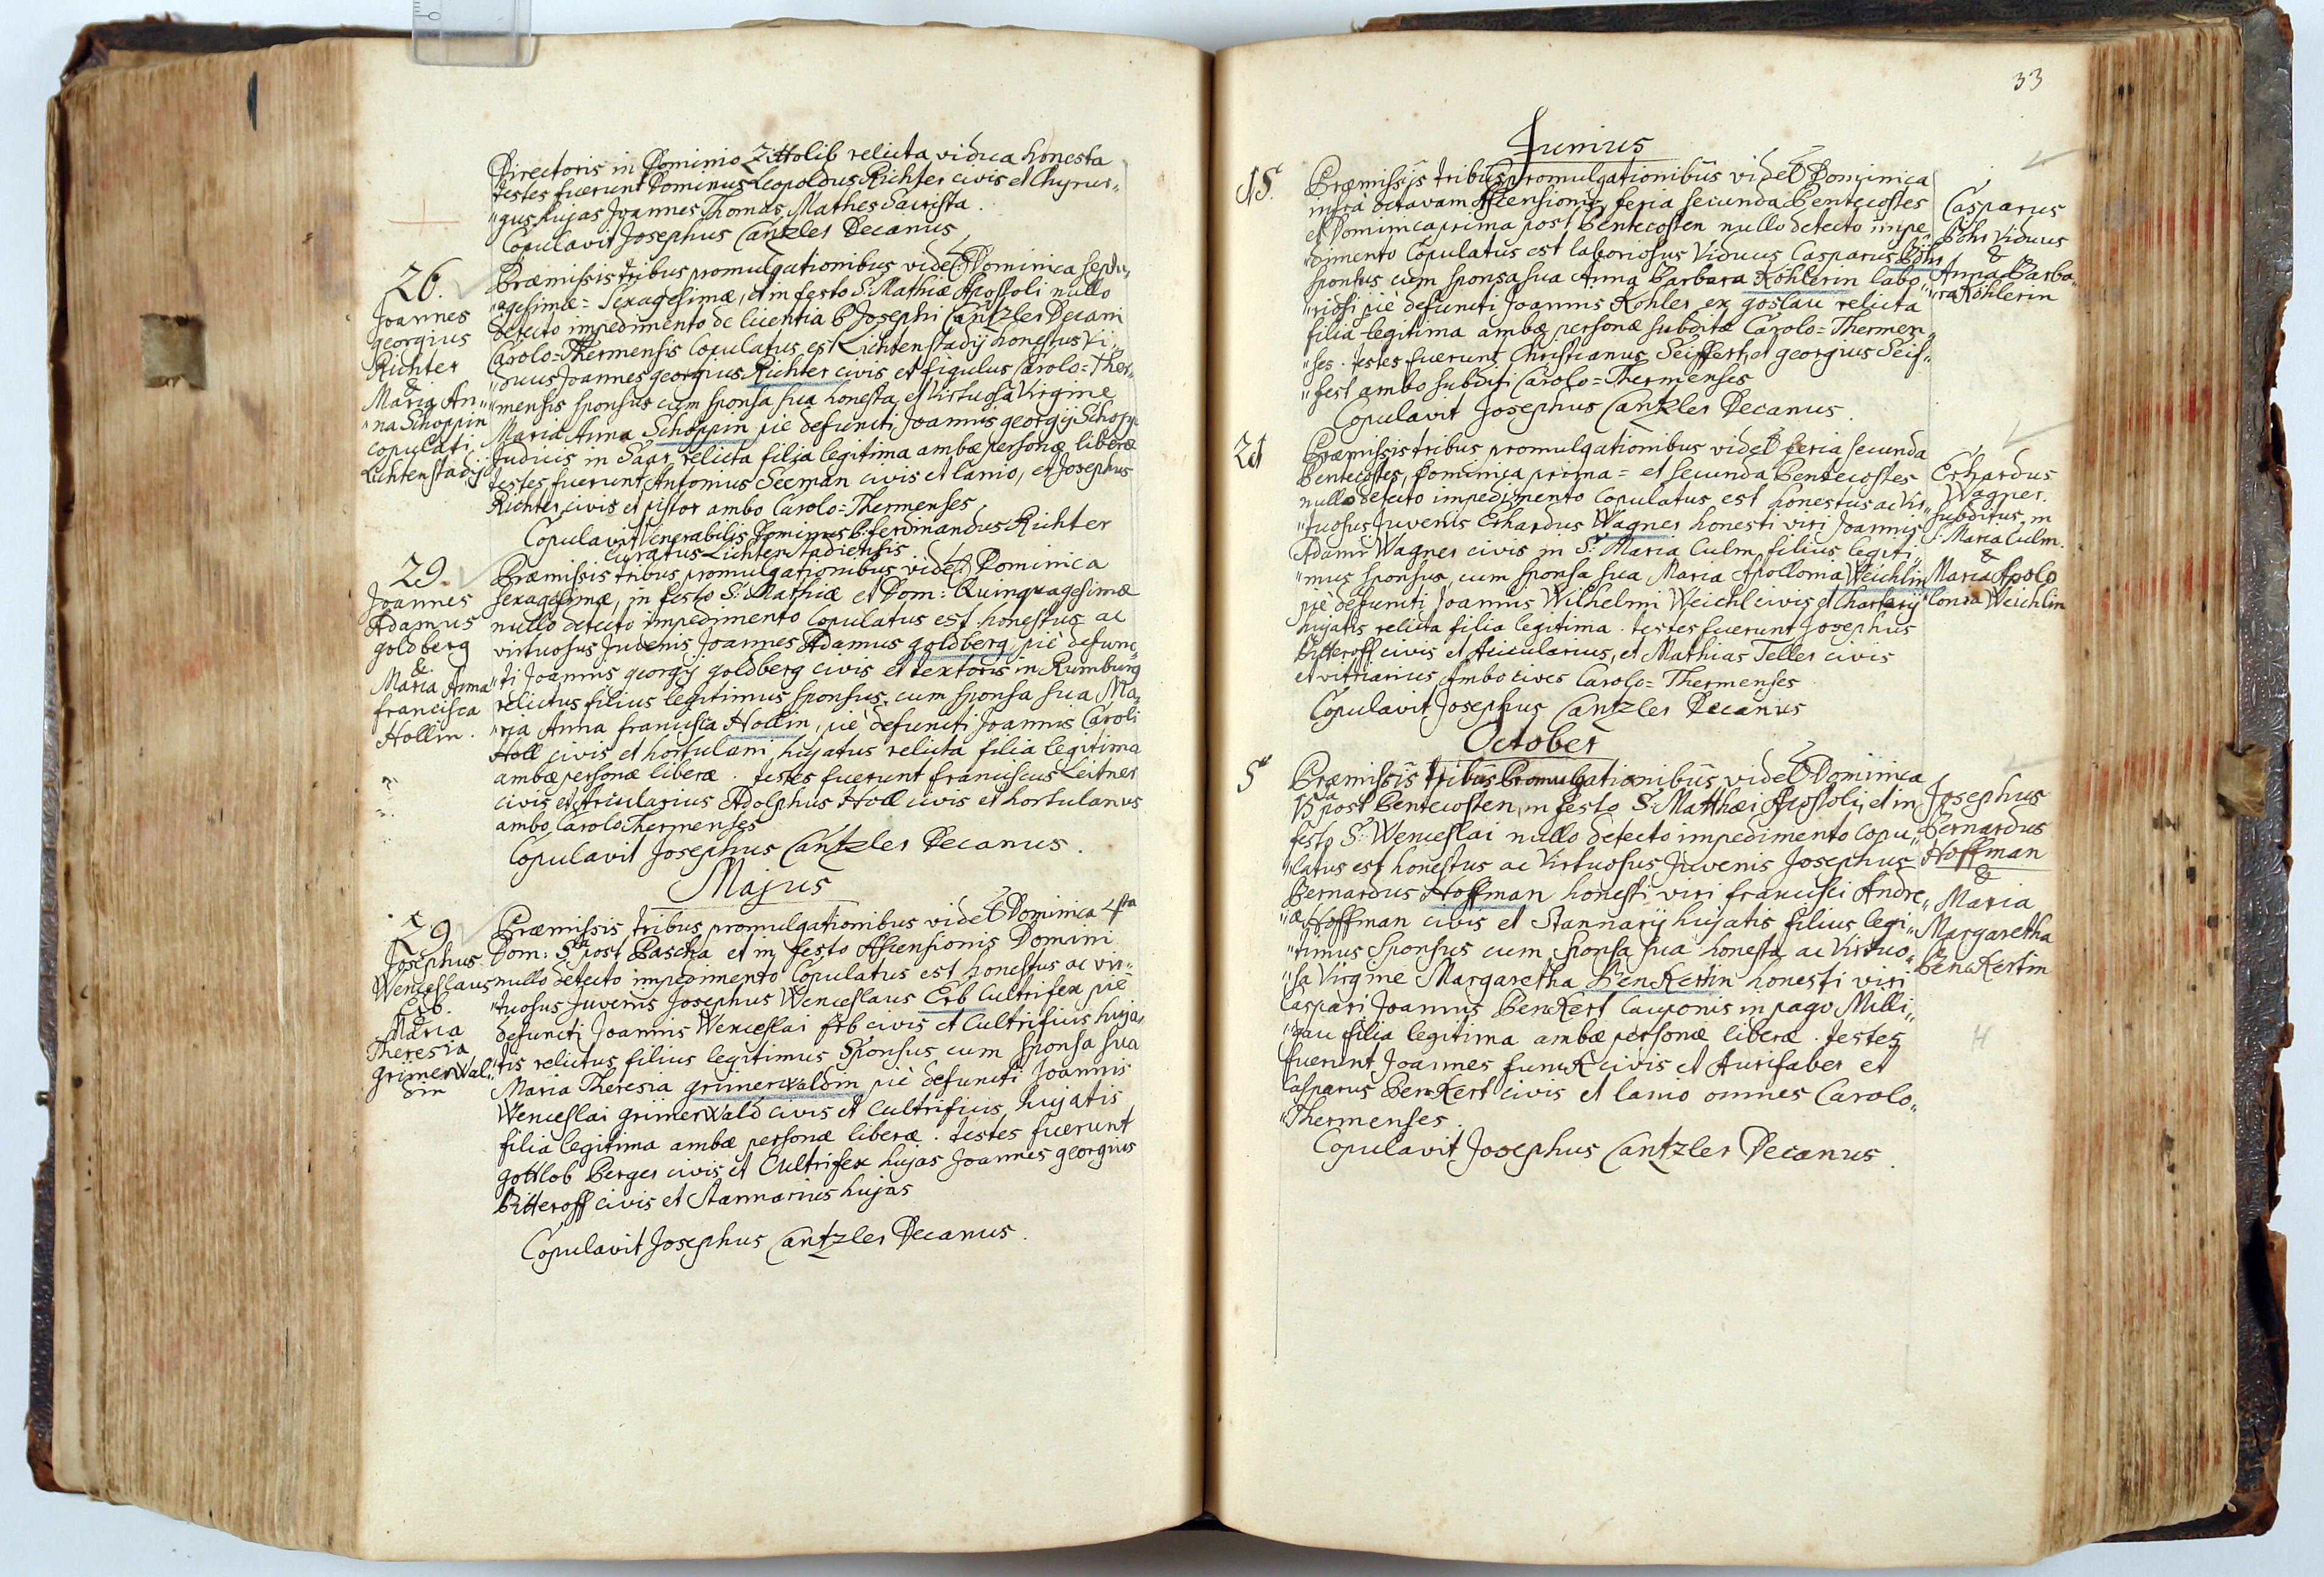 Directoris in Dominio Zittolib relicta vidua honesta
testes fuerunt Dominus Leopoldus Richter civis et Chyrur„
„gus hujas Joannes Thomas Mathes Sacrista.
Copulavit Josephus Cantzler Decanus
26.
Joannes
georgius
Richter
&
Maria An„
„na Schoppin
copulati
Lichtenstadij
Præmissis tribus promulgationibus videlt Dominica septu„
„agesimæ= Sexagesimæ, et in festo S: Mathiæ Apostoli nullo
detecto impedimento de licentia P Josephi Cantzler Decani
Carolo=Thermensis Copulatus est Lichtenstadij honestus Vi„
„duus Joannes georgius Richter civis et figulus Carolo=Ther„
„mensis sponsus cum sponsa sua honesta et Virtuosa Virgine
Maria Anna Schoppin piè defuncti Joannis georgij Schopp
Judicis in Saar relicta filia legitima ambæ personæ liberæ
testes fuerunt Antonius Seeman civis et lanio, et Josephus
Richter civis et pistor ambo Carolo=Thermenses
Copulavit Venerabilis Dominus P: ferdinandus Richter
Curatus Lichtenstadiensis
29.
Joannes
Adamus
goldberg
&
Maria Anna
francisca
Hollin.
Præmissis tribus promulgationibus videlt Dominica
sexagesimæ, in festo S: Mathiæ et Dom: Quinquagesimæ
nullo detecto impedimento Copulatus est honestus ac
virtuosus Juvenis Joannes Adamus goldberg piè defunc„
„ti Joannis georgij goldberg civis et textoris in Rumburg
relictus filius legitimus sponsus cum sponsa sua Ma„
„ria Anna francisca Hollin, piè defuncti Joannis Caroli
Holl civis et hortulani hujatus relicta filia legitima
ambæ personæ liberæ. testes fuerunt franciscus Leitner
civis et Acicularius Adolphus Holl civis et hortulanus
ambo Carolo Thermenses
Copulavit Josephus Cantzler Decanus.
Majus
29.
Josephus
Wenceslaus
Erb.
&
Maria
Theresia
grünerwal„
din
Præmissis tribus promulgationibus videlt Dominica 4ta
Dom: 5ta post Pascha et in festo Ascensionis Domini
nullo detecto impedimento Copulatus est honestus ac vir„
„tuosus Juvenis Josephus Wenceslaus Erb Cultrifex piè
defuncti Joannis Wenceslai Erb civis et Cultrificis huja„
„tis relictus filius legitimus Sponsus cum sponsa sua
Maria Theresia grünerwaldin piè defuncti Joannis
Wenceslai grünerwald civis et Cultrificis hujatis
filia legitima ambæ personæ liberæ. testes fuerunt
gottlob Berger civis et Cultrifex hujas Joannes georgius
Bitteroff civis et Stannarius hujas
Copulavit Josephus Cantzler Decanus.
33
Junius
15.
Præmissijs tribus promulgationibus videlt Dominica
infra octavam Ascensionis, feria secunda Pentecostes
et Dominica prima post Pentecosten nullo detecto impe„
„dimento Copulatus est laboriosus Viduus Casparus Pöhr
sponsus cum sponsa sua Anna Barbara Köhlerin labo„
„riosi piè defuncti Joannis Köhler ex goslau relicta
filia legitima ambæ personæ subditæ Carolo=Thermen„
„ses. testes fuerunt Christianus Seiffert, et georgius Seif„
„fert ambo subditi Carolo=Thermenses
Copulavit Josephus Cantzler Decanus.
Casparus
Viduus
&
Anna Barba„
„ra Köhlerin
21
Præmissis tribus promulgationibus videlt feria secunda
Pentecostes, Dominica prima= et secunda Pentecostes
nullo detecto impedimento Copulatus est honestus ac Vir„
„tuosus Juvenis Erhardus Wagner honesti viri Joannis
Adami Wagner civis in S: Maria Culm filius legiti„
„mus sponsus cum sponsa sua Maria Apollonia Weichlin
piè defuncti Joannis Wilhelmi Weichl civis et Chartarij
hujatis relicta filia legitima. testes fuerunt Josephus
Bitteroff civis et Acicularius, et Mathias Teller civis
et vitriarius Ambo cives Carolo=Thermenses
Copulavit Josephus Cantzler Decanus
Erhardus
Wagner.
subditus in
S: Maria Culm.
&
Maria Apolo
lonia Weichlin
October
5
Præmissis tribus Promulgationibus videlt Dominica
15ta post Pentecosten, in festo S: Matthæi Apostoli, et in
festo S: Wenceslai nullo detecto impedimento Copu„
„latus est honestus ac Virtuosus Juvenis Josephus
Bernardus Hoffman honesti viri francisci Andre„
„æ Hoffman civis et Stannarij hujatis filius legi„
„timus Sponsus cum sponsa sua honesta ac Virtuo„
„sa Virgine Margaretha Benckertin honesti viri
Caspari Joannis Benckert Cauponis in pago Milli„
„gau filia legitima ambæ personæ liberæ. testes
fuerunt Joannes funck civis et Aurifaber et
Casparus Benckert civis et lanio omnes Carolo„
„Thermenses.
Copulavit Josephus Cantzler Decanus.
Josephus
Bernardus
Hoffman
&
Maria
Margaretha
Benckertin